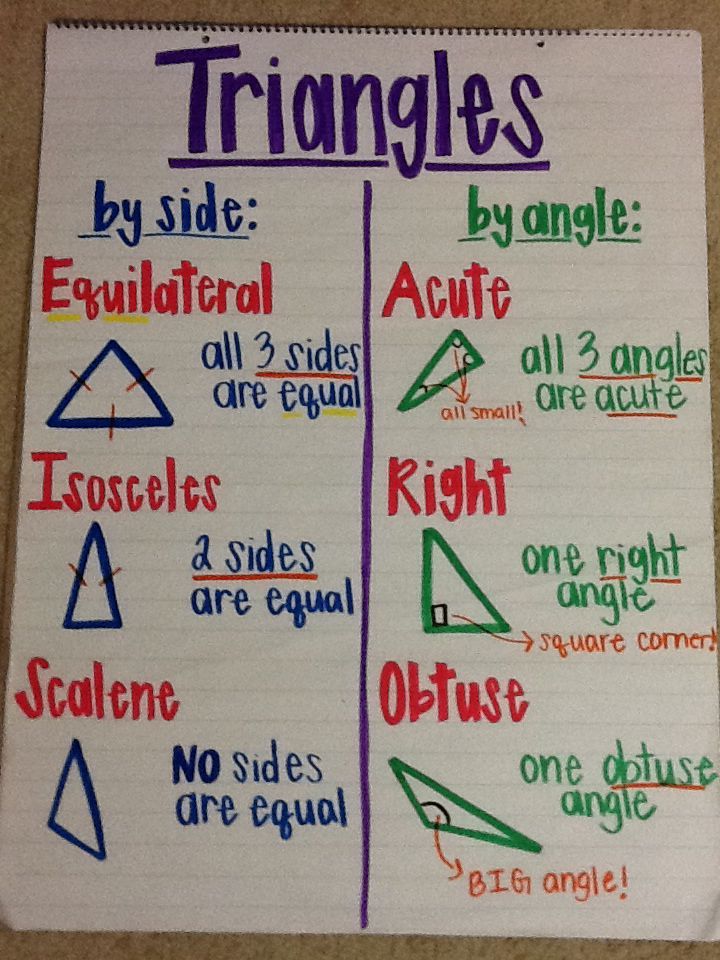 Triangles
by side:
Equilateral
all 3 sides
are equal
Isosceles
2 sides
are equal
Scalene
NO sides
are equal
by angle:
Acute
all 3 angles
are acute
all small!
Right
one right
angle
square corner!
Obtuse
one obtuse
angle
BIG angle!